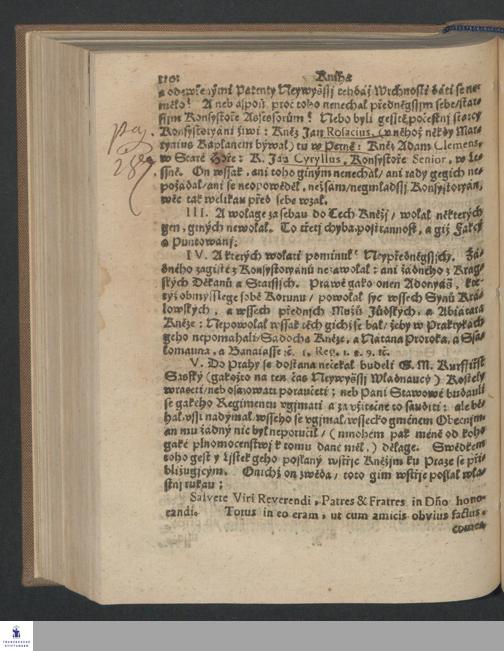 110: Kniha
a odewřenými Patenty Neywyšssj tehdáž Wrchnosti dáti se ne-
mělo? A neb aspoň proč toho nenechal přednějssjm sebe/star-
ssjm Konsystoře Assessorům? Nebo byli gesstě počestnj starcy
Konsystoryáni žiwi: Kněz Jan Rosacius, (v něhož někdy Mar-
tynius Kaplanem býwal) tu w Petně: Kněz Adam Clemens,
w Staré Hoře: K. Jan Cyryllus, Konsystoře Senior, w Le-
ssně. On wssak, ani toho giným nenechal/ ani rady gegich ne-
požádal/ani se neopowěděl, nežsám/neymladssj Konsystoryán,
wěc tak welikau před sebe wzal.
III. A wolage za sebau do Čech Kněžj/ wolal některých
gen, giných newolal. To třetj chyba, possrannost, a giž Fakcý
a Puntowanj:
IV. A kterých wolati pominul? Neypřednějssjch. Žá-
dného zagisté z Konsystoryánů nezawolal: ani žádného z Krag-
ských Děkanů a Starssjch. Práwě gako onen Adonyáš, kte-
rýž obmysslege sobě Korunu/ powolal syc wssech Synů Krá-
lowských, a wssech přednjch Mužů Jůdských, a Abiatara
Kněze: Nepowolal wssak těch gichž se bál/ žeby w Praktykách
geho nepomáhali/ Sádocha Kněze, a Nátana Proroka, a Ssa-
lomauna, a Banaiásse ꝛc. 1. Reg. 1. 8. 9. ꝛc.
V. Do Prahy se dostana nečekal budeli G. M. Kurffirst
Saský (gakožto na ten čas Neywyšssj Wládnaucý) Kostely
wraceti/ neb osazowati poraučeti; neb Páni Stawowé budauli
se gakého Regimentu vgjmati a za vžitečné to sauditi: ale bě-
hal, vssi nadýmal, wsseho se vgjmal/ wssecko gménem Obecnjm
an mu žádný nic byl neporučil/ (mnohem pak méně od koho
gaké plnomocenstwj k tomu dané měl,) dělage. Swědkem
toho gest y Ljstek geho poslaný wstřjc Kněžjm ku Praze se při-
bližugjcým. Onichž on zwěda/ toto gim wstřjc poslal wla-
stnj rukau;
Salvete Viri Reverendi, Patres & Fratres in Dño hono-
randi. Totus in eo eram, ut cum amicis obvius factus,
comen
FRANCKESCHE
STIFTUNGEN